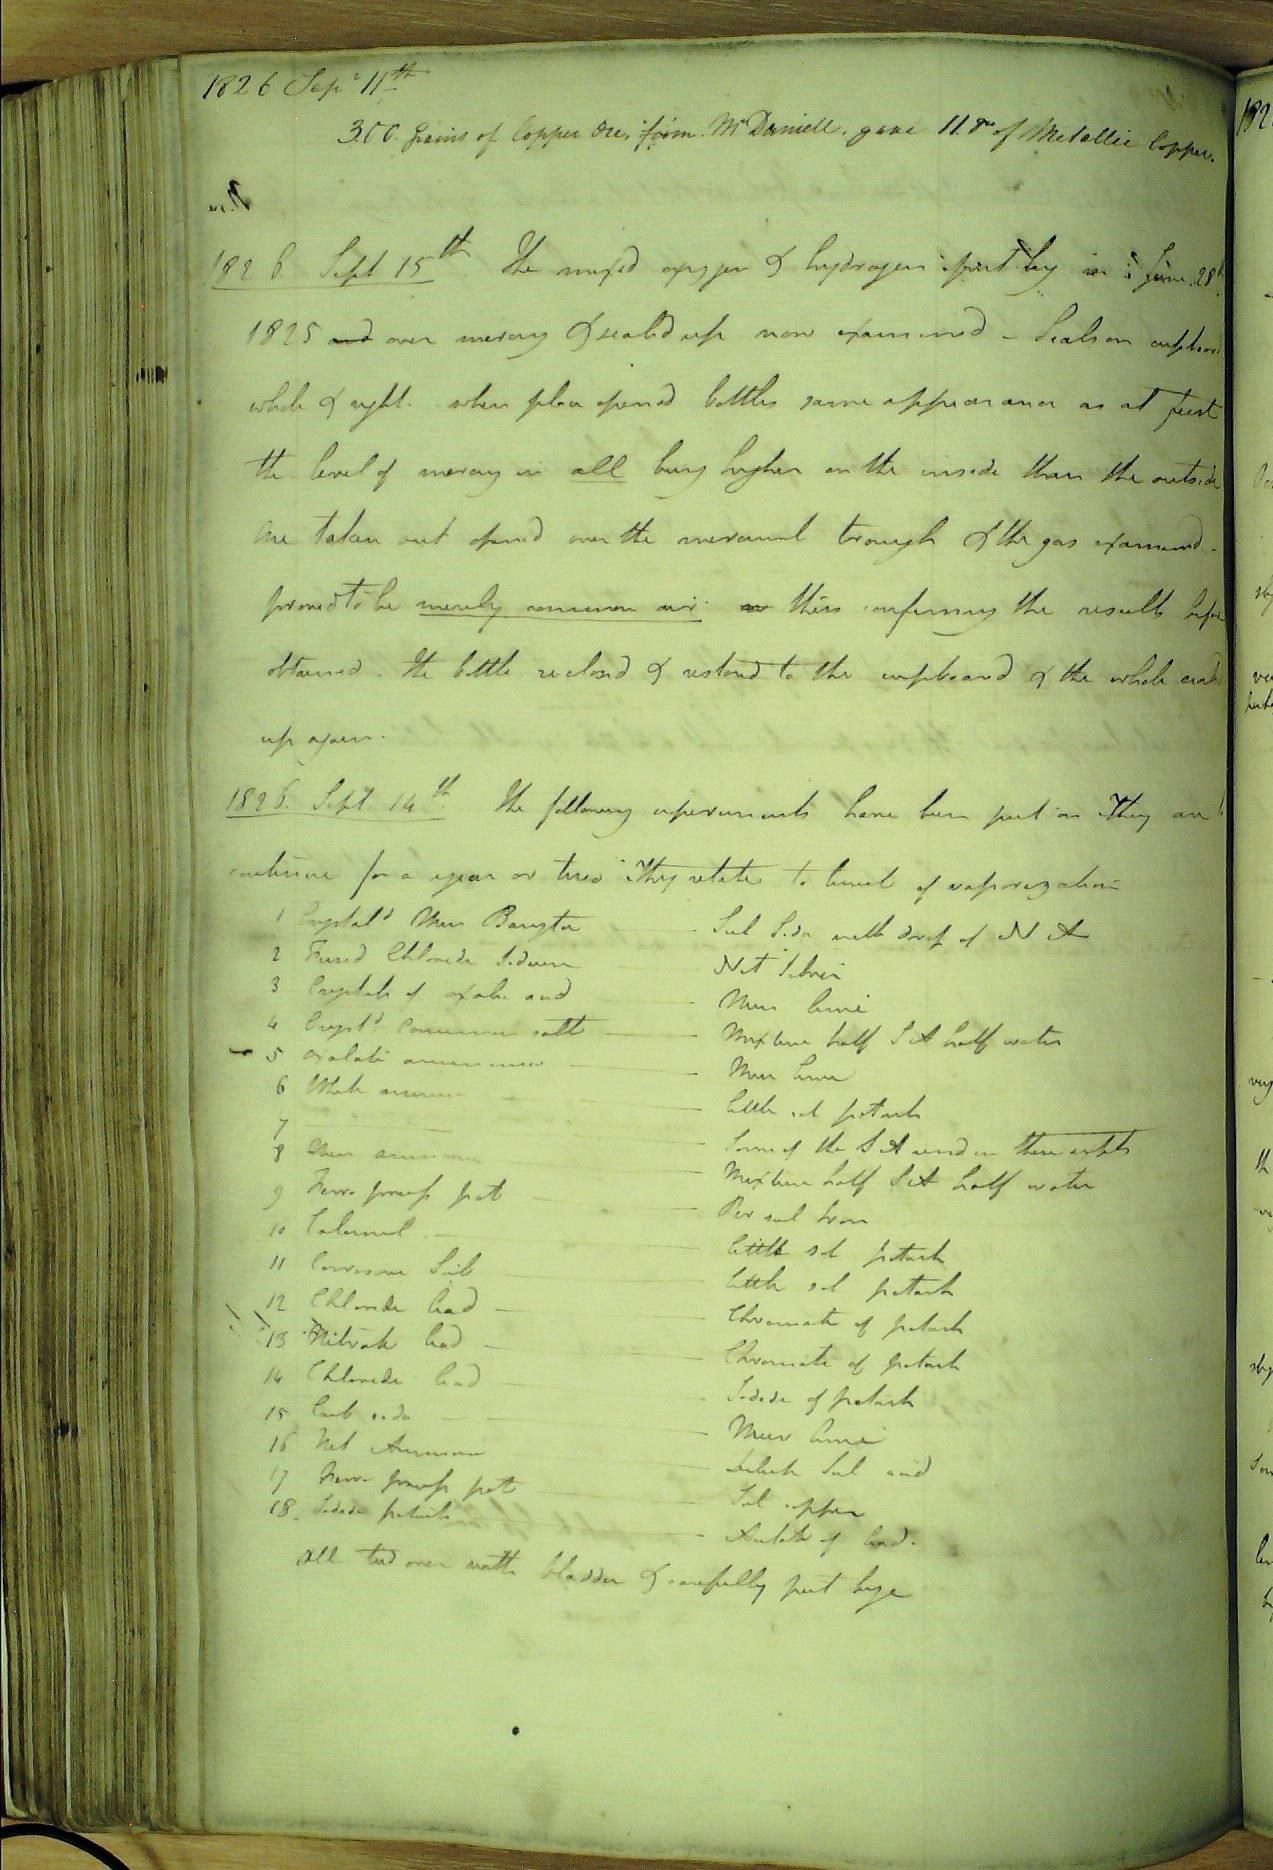 1826 Sepr 11th
300 Grains of Copper Ore, from Mr Daniell, gave 11.8 of Metallic Copper.
1826 Sept 15th The mixed oxygen & hydrogen put by in June 28
1825 and over mercury & sealed up now examined - Seals on cupboard
whole & right. when place opened bottles same appearance as at first
the level of mercury in all being higher on the inside than the outside
One taken out opened over the mercurial trough & the gas examined -
proved to be merely common air. this confirming the results before
obtained. The bottle reclosed & restored to the cupboard & the whole sealed
up again.
1826. Sept. 14th The following experiments have been put on They are to
continue for a year or two They relate to limit of vaporization
1 Crystald Mur Barytes Sul Soda with drop of N A
2 Fused Chloride Sodium Nit Silver
3 Crystals of oxalic acid Mur lime
4 Crystd Common salt Mixture half S A half water
5 oxalate ammonia Mur lime
6 White arsenic little sol potash
7 Some of the S A used in these expts
8 Mur ammonia Mixture half S A half water
9 Ferro prus pot Per sul Iron
10 Calomel little sol potash
11 Corrosive Sub little sol potash
12 Chloride lead Chromate of potash
13 Nitrate lead Chromate of potash
14 Chloride lead Iodide of potash
15 Carb soda Mur lime
16 Nit Ammonia Sul acid
17 Ferro prus pot Sul copper
18. Iodide potash Acetate of lead.
All tied over with bladder & carefully put bye